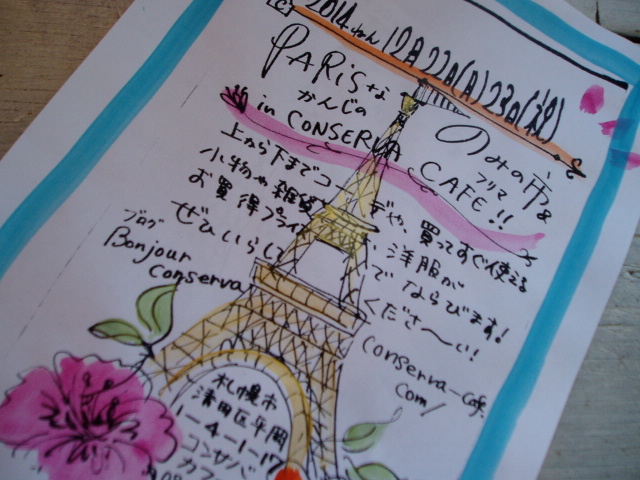 2014ねん 12月22日(月)23日(祝)
PARiSな
かんじの のみの市&
フリマ
in CONSERVA CAFE!!
上から下までコーデや、買ってすぐ使える
小物や雑貨、洋服が
お買得プライスでならびます!
ぜひいらしてくださ〜い!
ブログ
Bonjour
conserva
conserva-cafe.
com/
札幌市
清田区平岡
1-4-1-17
コンサバ
カフェ